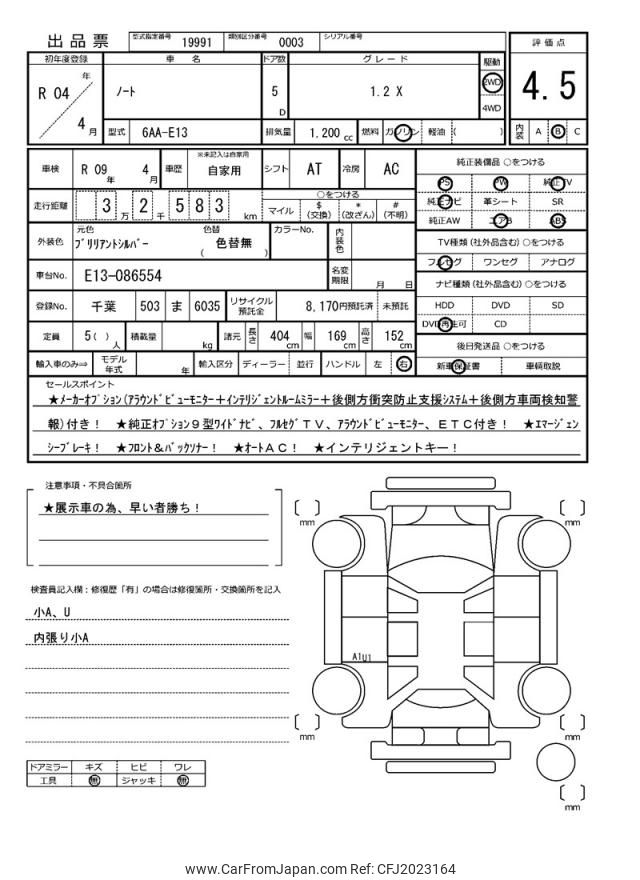 出品票 型式指定番号 19991 類別区分番号 0003 シリアル番号
評価点
4.5
内装 A B C
初年度登録 車名 ドア数 グレード 駆動
R 04 年 4 月
ﾉｰﾄ 5 D 1.2 X 2WD 4WD
型式 6AA-E13 排気量 1,200 cc 燃料 ガソリン 軽油 ( )
車検 R 09 年 4 月 車歴 ※未記入は自家用 自家用 シフト AT 冷房 AC
走行距離 3 万 2 千 5 8 3 km ○をつける マイル $(交換) *(改ざん) #(不明)
外装色 元色 ﾌﾞﾘﾘｱﾝﾄｼﾙﾊﾞｰ 色替 ( 色替無 ) カラーNo. 内装色
車台No. E13-086554 名変期限 月 日
登録No. 千葉 503 ま 6035 リサイクル預託金 8,170円預託済 未預託
定員 5( ) 人 積載量 kg 諸元 長さ 404 cm 幅 169 cm 高さ 152 cm
輸入車のみ⇨ モデル年式 年 輸入区分 ディーラー ・ 並行 ハンドル 左 ・ 右
純正装備品 ○をつける
PS PW 純正TV
純正ナビ 革シート SR
純正AW エアB ABS
TV種類 (社外品含む) ○をつける
フルセグ ワンセグ アナログ
ナビ種類 (社外品含む) ○をつける
HDD DVD SD
DVD再生可 CD
後日発送品 ○をつける
新車保証書 車輌取説
セールスポイント
★ﾒｰｶｰｵﾌﾟｼｮﾝ(ｱﾗｳﾝﾄﾞﾋﾞｭｰﾓﾆﾀｰ＋ｲﾝﾃﾘｼﾞｪﾝﾄﾙｰﾑﾐﾗｰ＋後側方衝突防止支援ｼｽﾃﾑ＋後側方車両検知警
報)付き！ ★純正ｵﾌﾟｼｮﾝ９型ﾜｲﾄﾞﾅﾋﾞ、ﾌﾙｾｸﾞＴＶ、ｱﾗｳﾝﾄﾞﾋﾞｭｰﾓﾆﾀｰ、ＥＴＣ付き！ ★ｴﾏｰｼﾞｪﾝ
ｼｰﾌﾞﾚｰｷ！ ★ﾌﾛﾝﾄ&ﾊﾞｯｸｿﾅｰ！ ★ｵｰﾄＡＣ！ ★インテリジェントキー！
注意事項・不具合箇所
★展示車の為、早い者勝ち！
検査員記入欄：修復歴「有」の場合は修復箇所・交換箇所を記入
小A、U
内張り小A
ドアミラー キズ ヒビ ワレ
工具 無 ジャッキ 無
mm
mm
A1U1
mm
mm
mm
www.CarFromJapan.com Ref: CFJ2023164